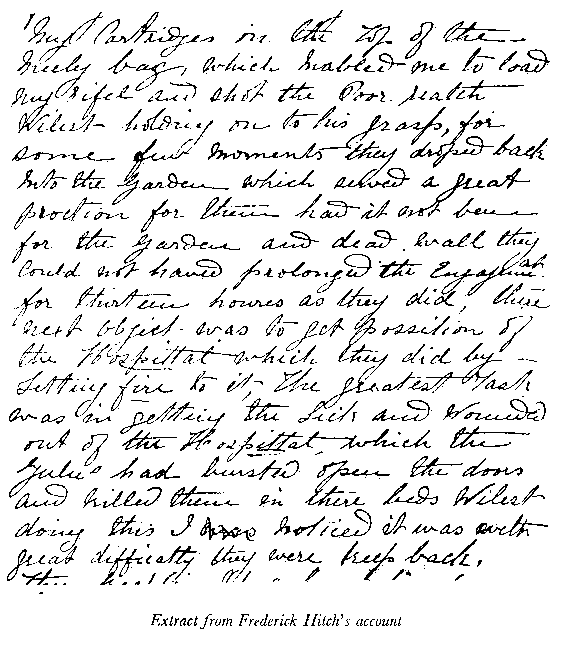 my Cartridges in the top of the
mely bag, which nabled me to load
my rifel and shot the Poor reatch
Wilest holding on to his grasps, for
some few moments they droped back
into the Garden which served a great
proction for them had it not been
for the Garden and dead wall they
could not haved prolonged the Engagment
for thirteen houres as they did, there
next object was to get possition of
the Hospittal which they did by -
setting fire to it, The greatest task
was in getting the Sick and Wounded
out of the Hospittal, which the
Zulus had bursted open the doors
and killed them in there beds Wilest
doing this I noticed it was with
great difficatty they were keep back.
Extract from Frederick Hitch's account